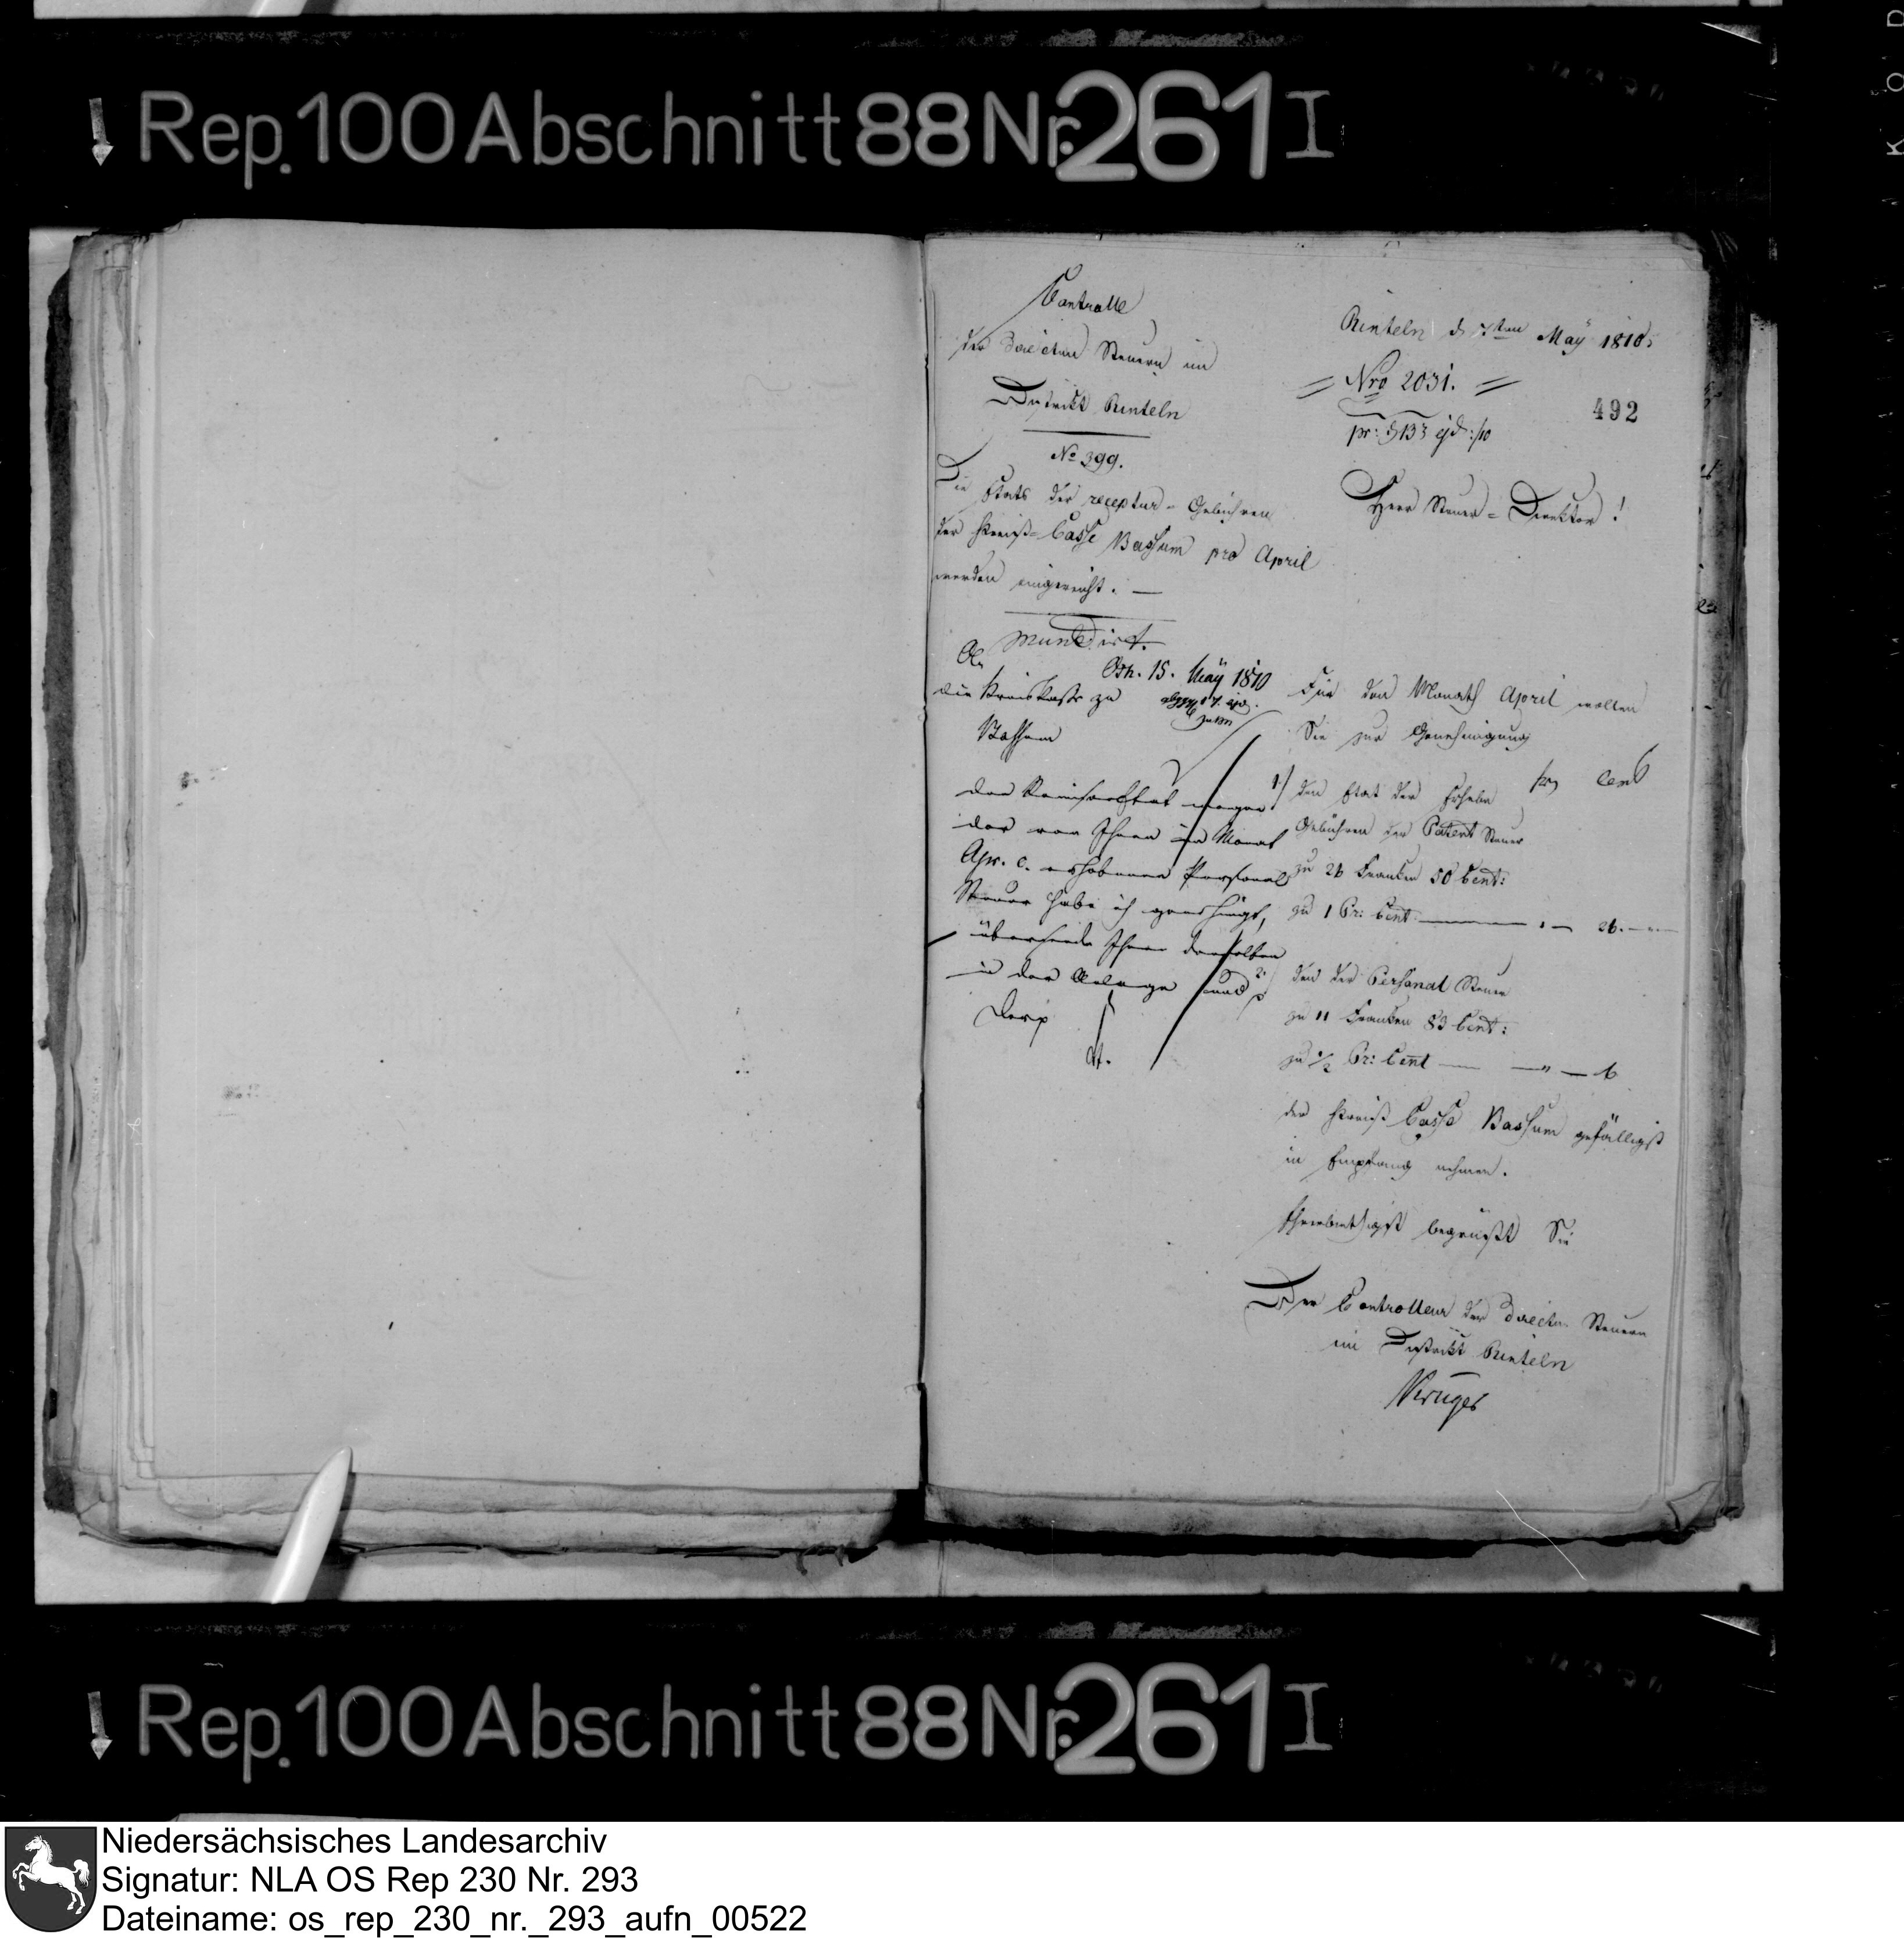 Rep. 100 Abschnitt 88 Nr. 261 I
Controlle
der directen Steuern im
Distrikt Rinteln
No 399.
Die Etats der receptur-Gebühren
der Kreiß-Casse Bassum pro April
werden eingereicht. —
Rinteln d 7ten May 1810.
Nro 2031.
492
pr: d 13 ejd: /10
Herr Steuer-Direktor!
Mundirt.
Osn. 15. May 1810
An
die Kreiskasse zu
Bassum
der von Ihnen im Monat
Apr. c. erhobenen Personal
Steuer habe ich genehmigt,
übersende Ihnen denselben
in der Anlage und
Für den Monath April wollen
Sie zur Genehmigung
1) den Etat der Hebe frz Cent
Gebühren der Patent Steuer
zu 26 Franken 50 Cent:
zu 1 Pr: Cent — 26. —
2) den der Personal Steuer
zu 11 Franken 83 Cent:
zu 1/2 Pr: Cent — " — 6
der Kreiß Casse Bassum gefälligst
in Empfang nehmen.
Ehrerbietigst begrüßt Sie
Der Controlleur der directen Steuern
im Distrikt Rinteln
Rep. 100 Abschnitt 88 Nr. 261 I
Niedersächsisches Landesarchiv
Signatur: NLA OS Rep 230 Nr. 293
Dateiname: os_rep_230_nr._293_aufn_00522